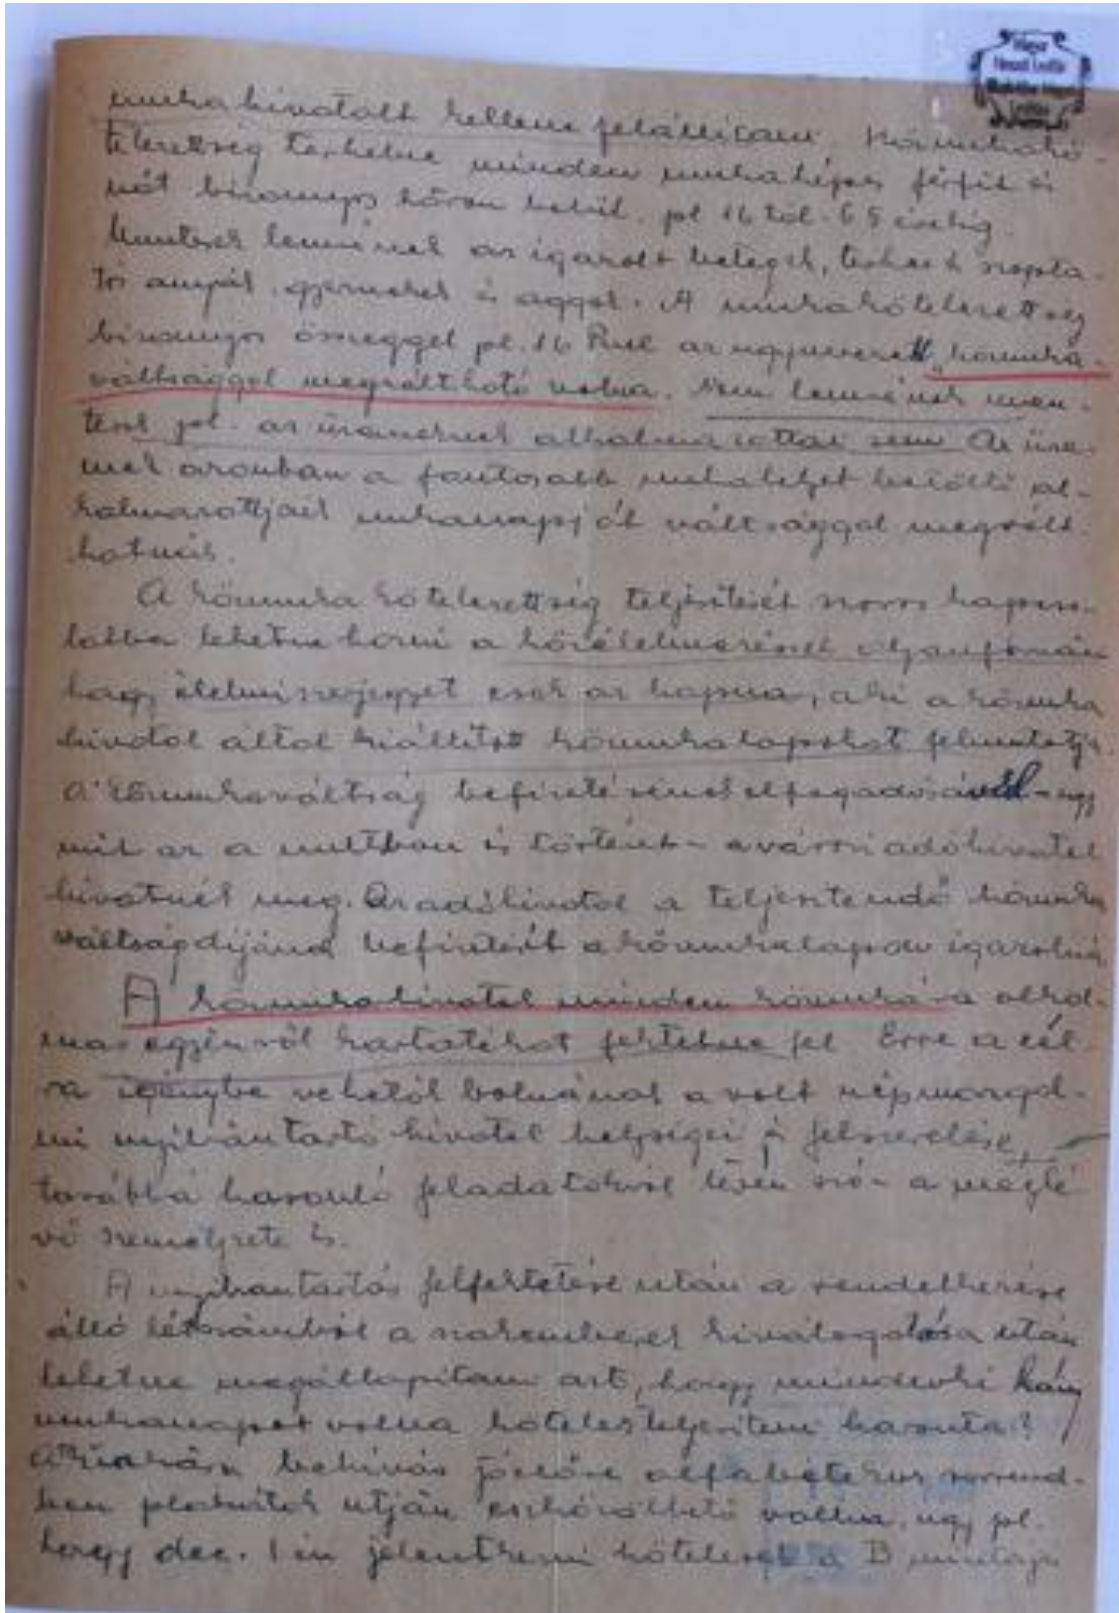 Magyar
Nemzeti Levéltár
Levéltára
munkahivatalt kellene felállítani. Közmunkakö-
telezettség terhelne minden munkaképes férfit és
nőt bizonyos koron belül, pl 16 tól - 65 évesig.
Mentesek lennének az igazolt betegek, terhes és szopta-
tós anyák, gyermekek és aggok. A munkakötelezettség
bizonyos összeggel pl. 16 az ugynevezett „közmunka-
váltsággal megváltható volna. Nem lennének men-
tesek pl. az üzemeknek alkalmazottai sem Az üze-
mek azonban a fontosabb munkahelyet betöltő al-
kalmazottjaik munkanapját váltsággal megvált-
hatnák.
A közmunka kötelezettség teljesítését szoros kapcso-
latba lehetne hozni a közélelmezéssel olyanformán
hogy élelmiszerjegyet csak az kapna, aki a közmunka
hivatal által kiállított közmunkalapokat felmutatja
A közmunkaváltság befizetésének elfogadásával – ugy
mint az a multban is történt – a városi adóhivatal
bizatnék meg. Az adóhivatal a teljesítendő közmunka
váltságdíjának befizetését a közmunkalapon igazolná.
A közmunkahivatal minden közmunkára alkal-
mas egyénről kartotékot fektetne fel Erre a cél-
ra igénybe vehetők volnának a volt népmozgal-
mi nyilvántartó hivatal helységei és felszerelése,
továbbá hasonló feladatokról lévén szó – a meglé-
vő személyzete is.
A nyilvántartás felfektetése után a rendelkezésre
álló létszámból a szakemberek kiválogatása után
lehetne megállapítani azt, hogy mindenki hány
munkanapot volna köteles teljesíteni havonta?
behívás jóelőre alfabetikus sorrend-
ben plakátok utján eszközölhető volna, ugy pl.
hogy dec. 1 én jelentkezni kötelesek a B